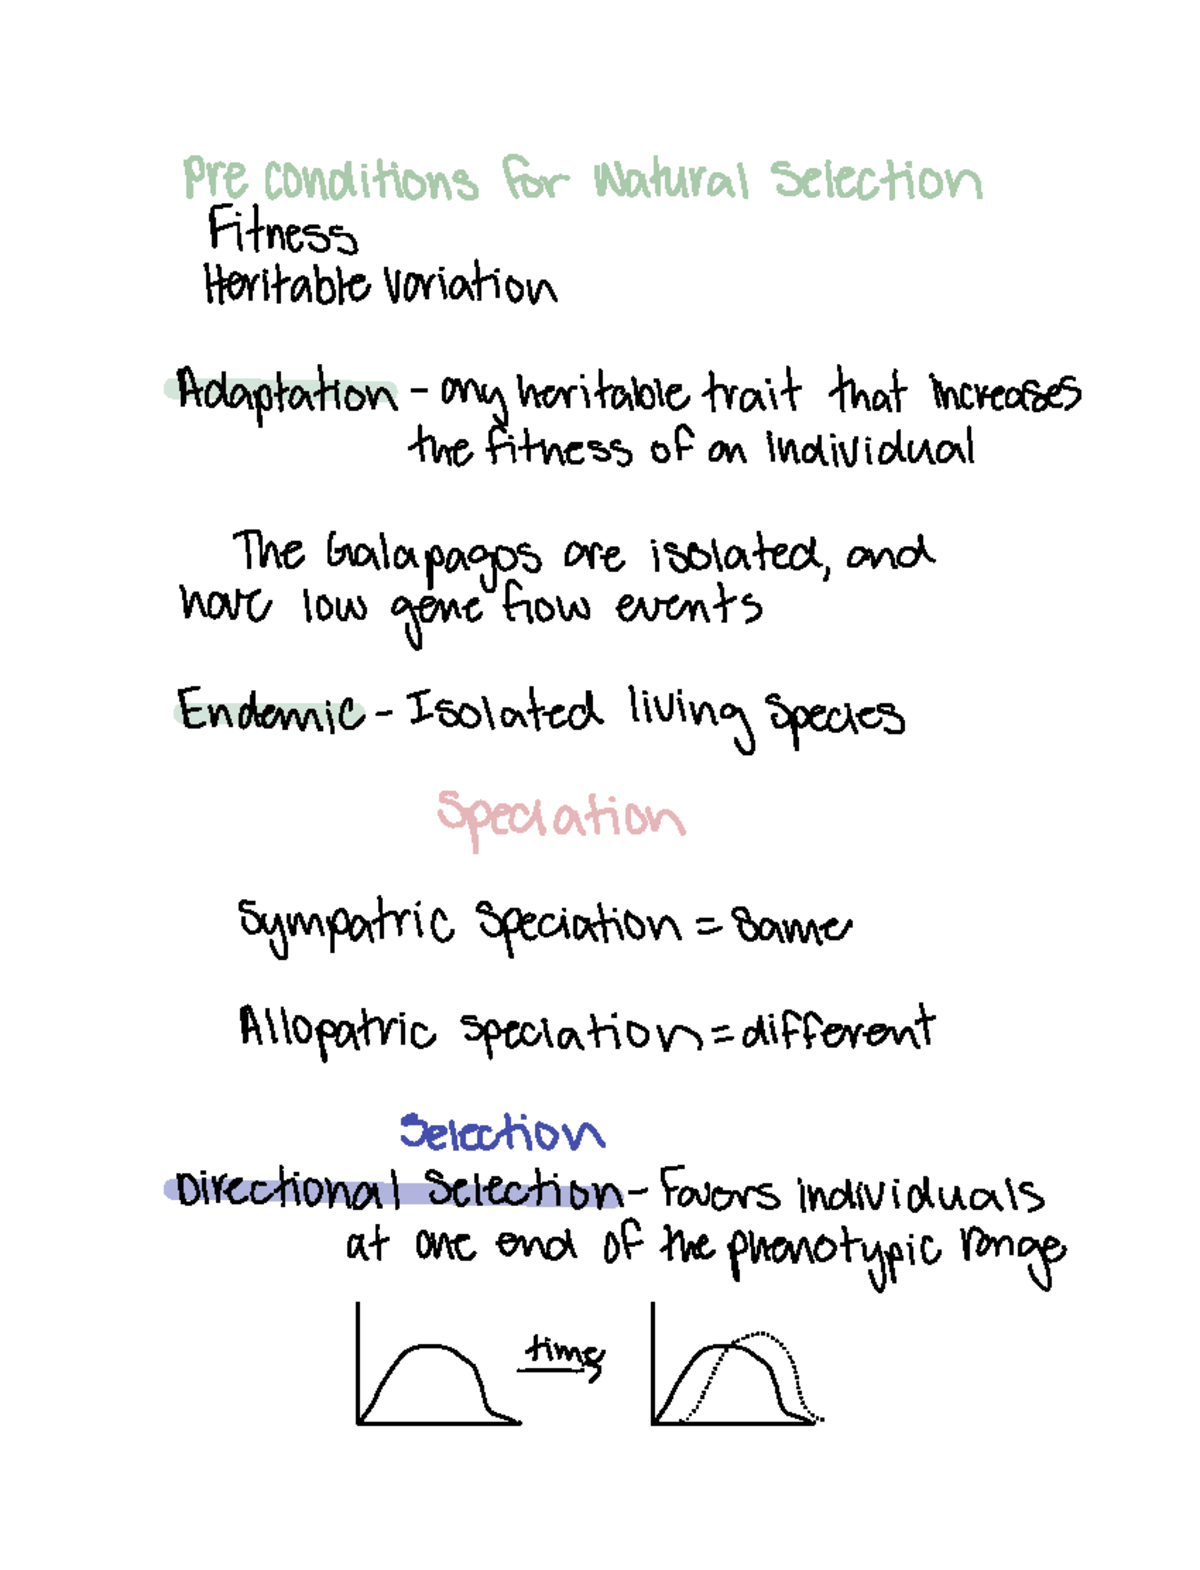 Pre conditions for Natural Selection
Fitness
Heritable Variation
Adaptation - any heritable trait that increases
the fitness of an individual
The Galapagos are isolated, and
have low gene flow events
Endemic - Isolated living species
Speciation
Sympatric Speciation = Same
Allopatric speciation = different
Selection
Directional Selection - Favors individuals
at one end of the phenotypic range
time